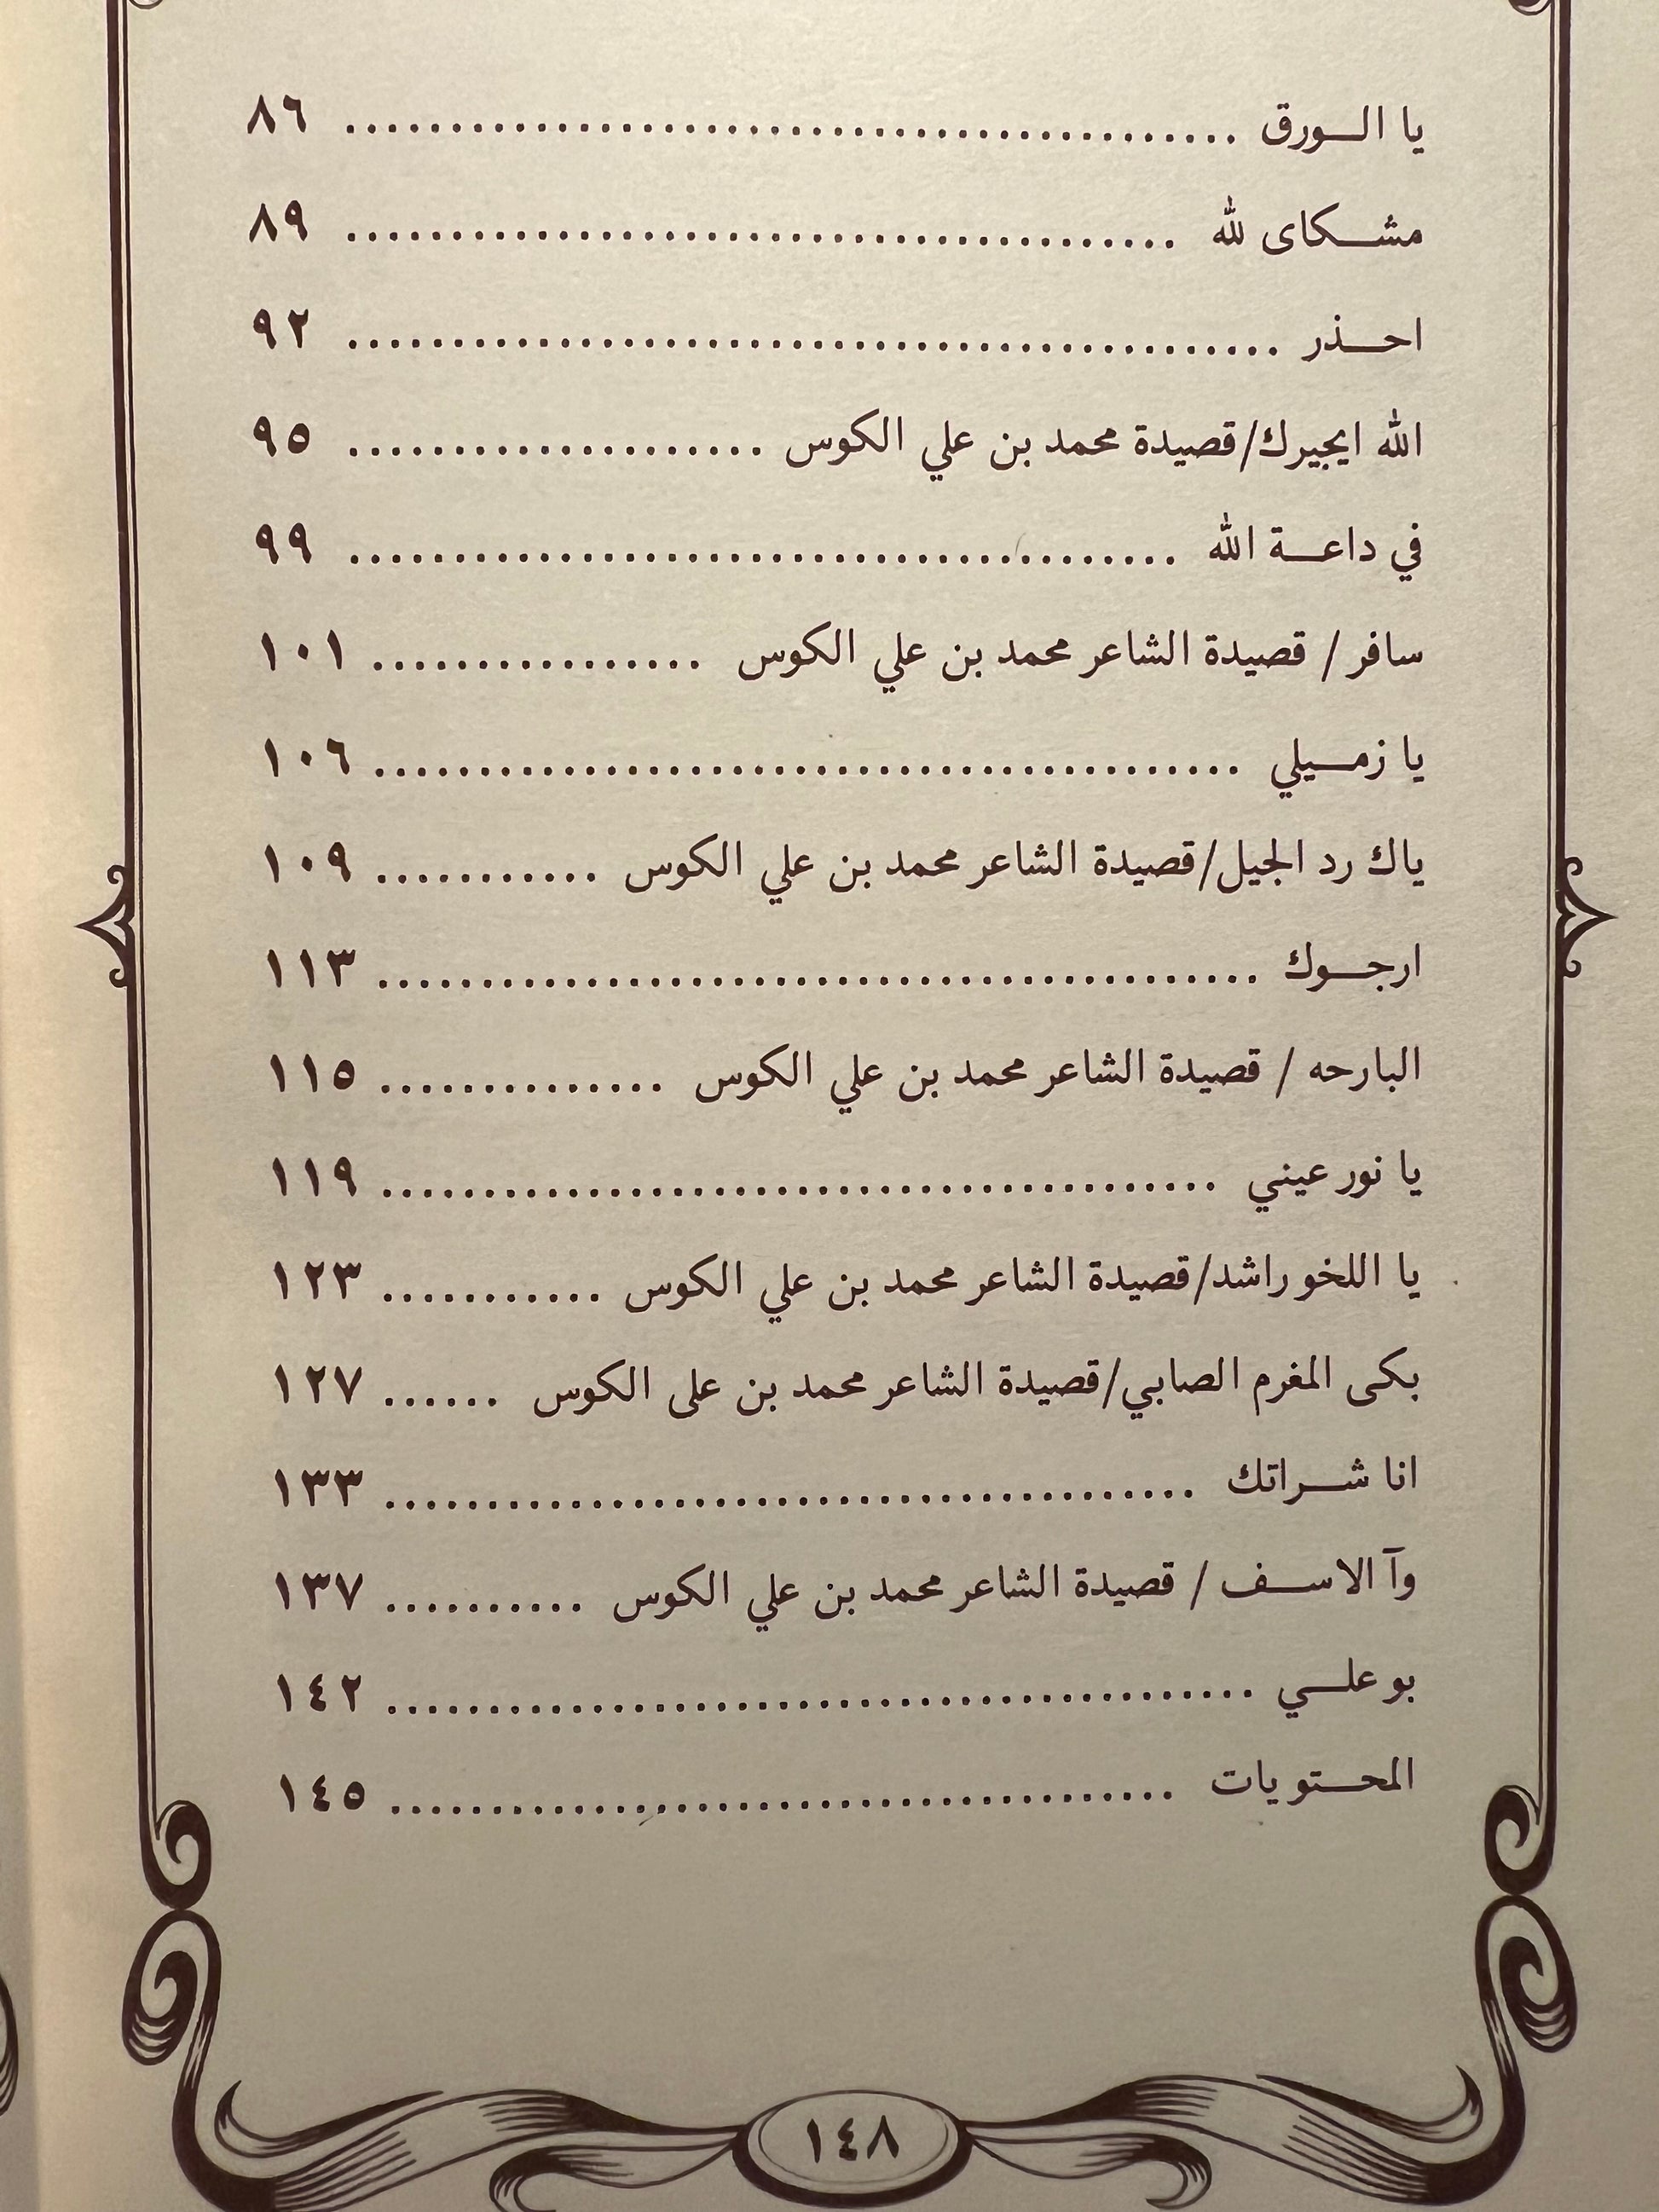 يا الـورق ........................................... ٨٦
مشـكاى لله ........................................ ٨٩
احـذر ............................................. ٩٢
الله ايجيرك/قصيدة محمد بن علي الكوس .................... ٩٥
في داعـة الله ........................................ ٩٩
سافر / قصيدة الشاعر محمد بن علي الكوس ................ ١٠١
يا زمـيلي .......................................... ١٠٦
ياك رد الجيل/قصيدة الشاعر محمد بن علي الكوس ........... ١٠٩
ارجـوك ........................................... ١١٣
البارحه / قصيدة الشاعر محمد بن علي الكوس .............. ١١٥
يا نور عيني ......................................... ١١٩
يا اللخو راشد/قصيدة الشاعر محمد بن علي الكوس ........... ١٢٣
بكى المغرم الصابي/قصيدة الشاعر محمد بن على الكوس ...... ١٢٧
انا شـراتك ........................................ ١٣٣
وآ الاسـف / قصيدة الشاعر محمد بن علي الكوس .......... ١٣٧
بو علـي .......................................... ١٤٢
المحـتويات ...................................... ١٤٥
١٤٨